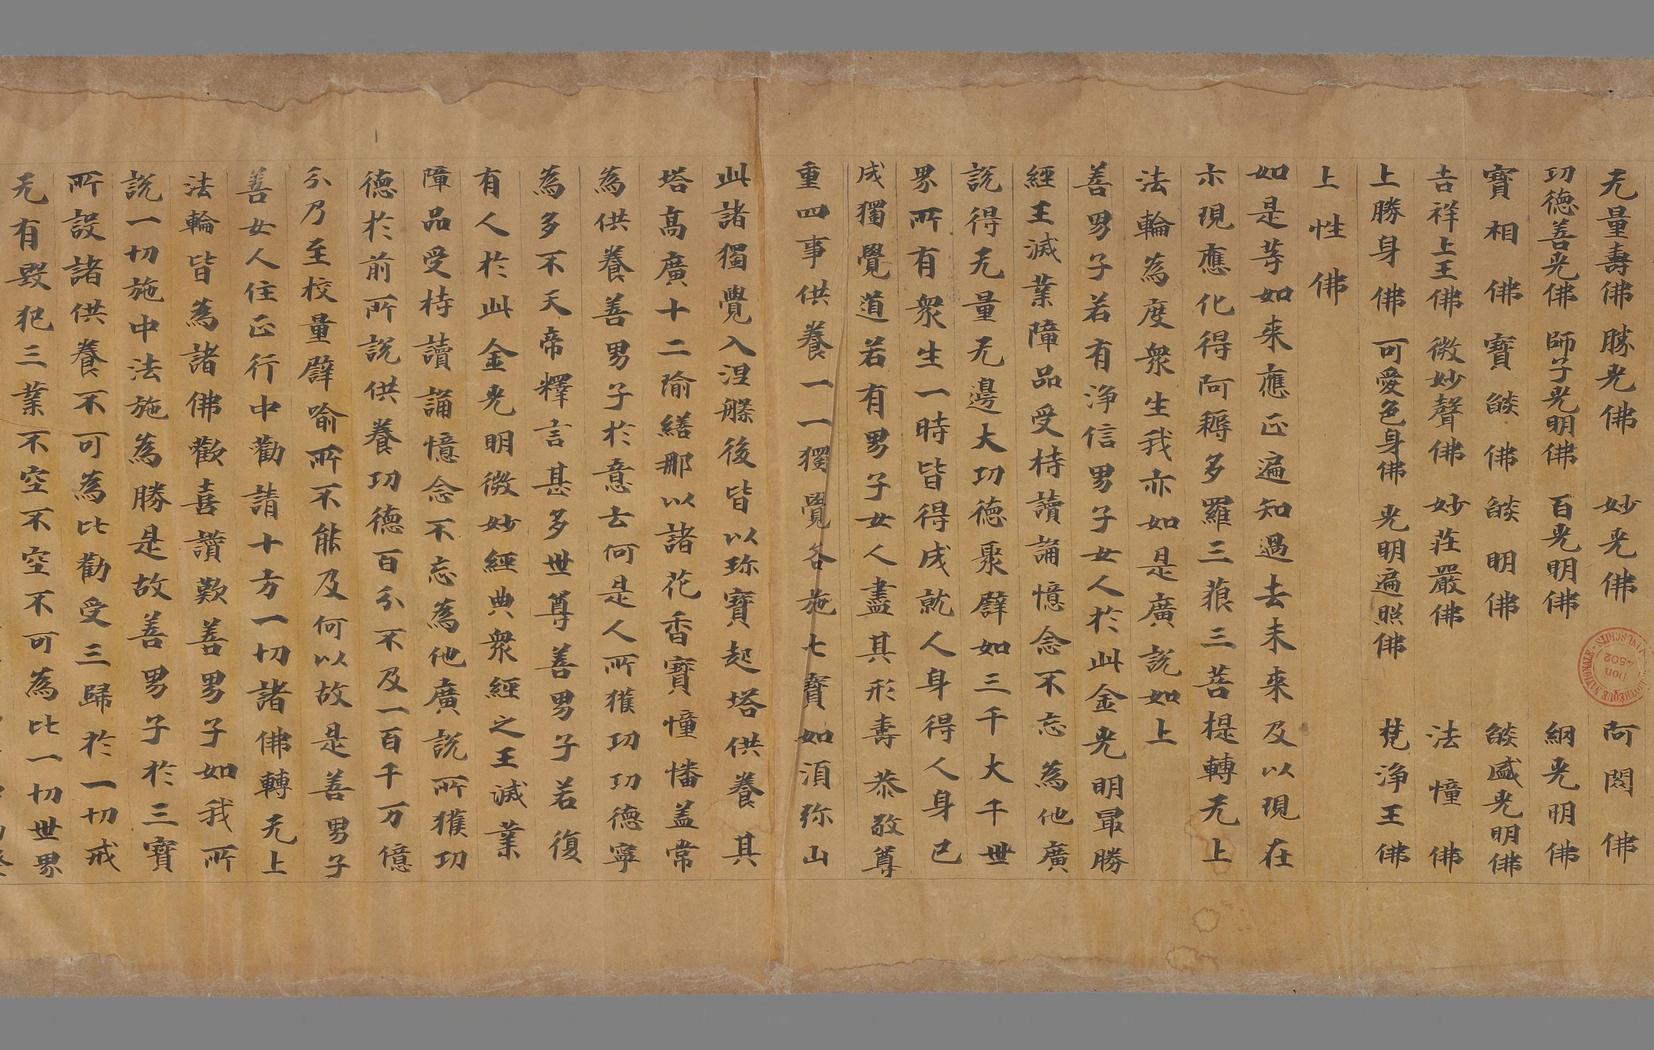 无量壽佛 勝光佛 妙光佛 阿閦佛
功德善光佛 師子光明佛 百光明佛 網光明佛
寶相佛 寶燄佛 燄明佛 燄盛光明佛
吉祥上王佛 微妙聲佛 妙莊嚴佛 法幢佛
上勝身佛 可愛色身佛 光明遍照佛 梵淨王佛
上性佛
如是等如來應正遍知過去未來及以現在
示現應化得阿耨多羅三藐三菩提轉无上
法輪為度衆生我亦如是廣說如上
善男子若有淨信男子女人於此金光明最勝
經王滅業障品受持讀誦憶念不忘為他廣
說得无量无邊大功德聚譬如三千大千世
界所有衆生一時皆得成就人身得人身已
成獨覺道若有男子女人盡其形壽恭敬尊
重四事供養一一獨覺各施七寶如湏弥山
此諸獨覺入涅槃後皆以珎寶起塔供養其
塔高廣十二瑜繕那以諸花香寶幢幡盖常
為供養善男子於意云何是人所獲功功德寧
為多不天帝釋言甚多世尊善男子若復
有人於此金光明微妙經典衆經之王滅業
障品受持讀誦憶念不忘為他廣說所獲功
德於前所說供養功德百分不及一百千万億
分乃至校量譬喻所不能及何以故是善男子
善女人住正行中勸請十方一切諸佛轉无上
法輪皆為諸佛歡喜讚歎善男子如我所
說一切施中法施為勝是故善男子於三寶
所設諸供養不可為比勸受三歸於一切戒
无有毀犯三業不空不空不可為比一切世界